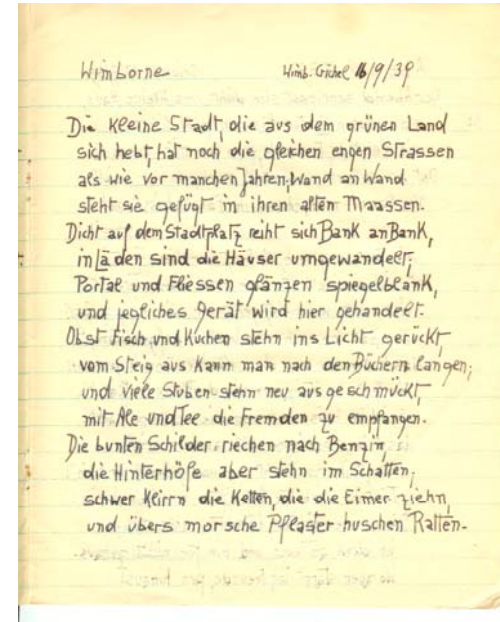 Wimborne Wimb. Gichel 16/9/39
Die kleine Stadt, die aus dem grünen Land
sich hebt, hat noch die gleichen engen Strassen
als wie vor manchen Jahren; Wand an Wand
steht sie gefügt in ihren alten Maassen.
Dicht auf dem Stadtplatz reiht sich Bank an Bank,
in Läden sind die Häuser umgewandelt,
Portal und Fliessen glänzen spiegelblank,
und jegliches Gerät wird hier gehandelt.
Obst, Fisch, und Kuchen stehn ins Licht gerückt,
vom Steig aus kann man nach den Büchern langen;
und viele Stuben stehn neu ausgeschmückt,
mit Ale und Tee die Fremden zu empfangen.
Die bunten Schilder riechen nach Benzin,
die Hinterhöfe aber stehn im Schatten;
schwer klirrn die Ketten, die die Eimer ziehn,
und übers morsche Pflaster huschen Ratten.